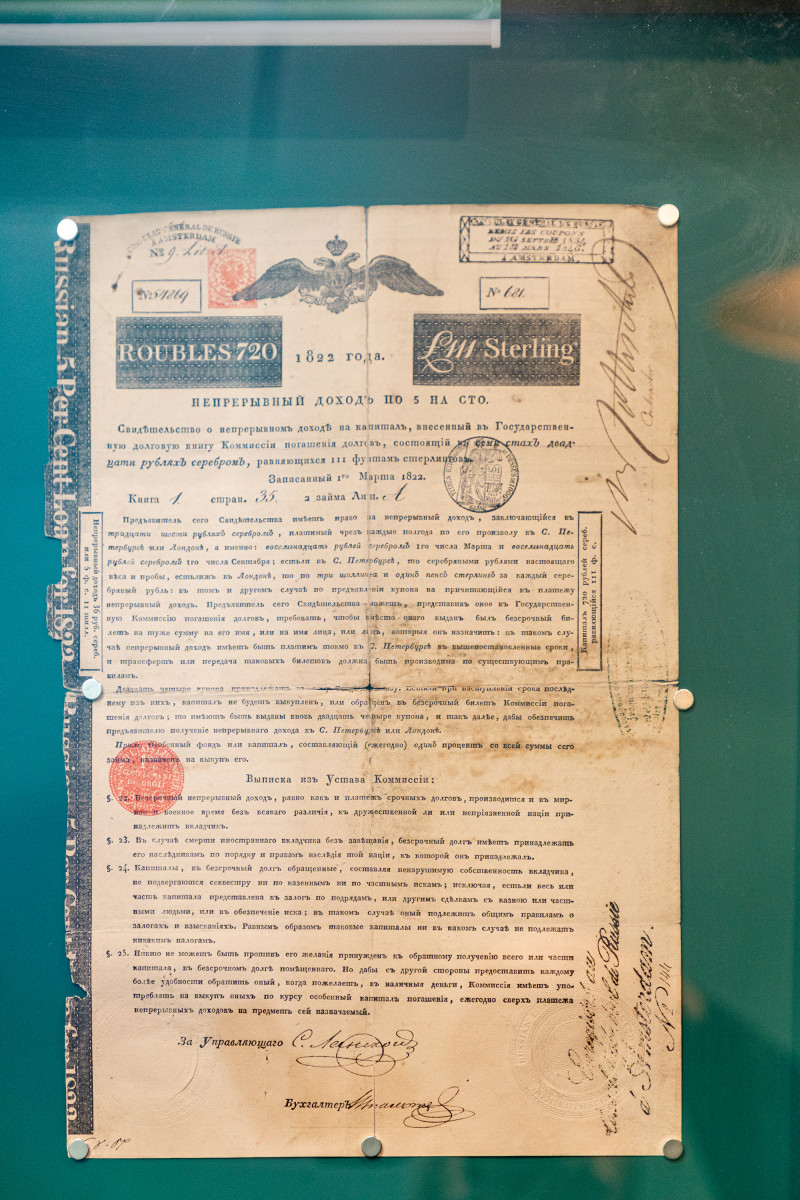 CONSULAT GÉNÉRAL DE RUSSIE
A AMSTERDAM
CONSULAT GÉNÉRAL DE RUSSIE
REMIS LES COUPONS
A AMSTERDAM.
№ 54869
№ 681.
ROUBLES 720
1822 года.
£111 Sterling
НЕПРЕРЫВНЫЙ ДОХОДЪ ПО 5 НА СТО.
Свидѣтельство о непрерывномъ доходѣ на капиталъ, внесенный въ Государствен-
ную долговую книгу Коммиссіи погашенія долговъ, состоящій въ семи стахъ двад-
цати рубляхъ серебромъ, равняющихся 111 фунтамъ стерлинговъ.
Записанный 1го Марта 1822.
Книга 1 стран. 35. 2 займа Лит. А
Непрерывный доходъ 36 руб. сереб.
или 5 ф. с. 11 шил.
Капиталъ 720 рублей сереб.
равняющійся 111 ф. с.
Предъявитель сего Свидѣтельства имѣетъ право на непрерывный доходъ, заключающійся въ
тридцати шести рубляхъ серебромъ, платимый чрезъ каждые полгода по его произволу въ С. Пе-
тербургѣ или Лондонѣ, а именно: восемьнадцать рублей серебромъ 1го числа Марта и восемьнадцать
рублей серебромъ 1го числа Сентября; естьли въ С. Петербургѣ, то серебряными рублями настоящаго
вѣса и пробы, естьлижъ въ Лондонѣ, то по три шиллинга и одинъ пенсъ стерлингъ за каждый сере-
бряный рубль: въ томъ и другомъ случаѣ по предъявленіи купона на причитающійся къ платежу
непрерывный доходъ. Предъявитель сего Свидѣтельства можетъ, представивъ оное въ Государствен-
ную Коммиссію погашенія долговъ, требовать, чтобы вмѣсто онаго выданъ былъ безсрочный би-
летъ на туже сумму на его имя, или на имя лица, или лицъ, которыя онъ назначитъ: въ такомъ слу-
чаѣ непрерывный доходъ имѣетъ быть платимъ токмо въ С. Петербургѣ въ вышепостановленные сроки,
и трансфертъ или передача таковыхъ билетовъ должна быть производима по существующимъ пра-
виламъ.
Двадцать четыре купона принадлежатъ къ сему Свидѣтельству. Естьли при наступленіи срока послѣд-
нему изъ нихъ, капиталъ не будетъ выкупленъ, или обращенъ въ безсрочный билетъ Коммиссіи пога-
шенія долговъ; то имѣютъ быть выданы вновь двадцать четыре купона, и такъ далѣе, дабы обезпечить
предъявителю полученіе непрерывнаго дохода въ С. Петербургѣ или Лондонѣ.
Прим. Особенный фондъ или капиталъ, составляющій (ежегодно) одинъ процентъ со всей суммы сего
займа, назначенъ на выкупъ его.
Выписка изъ Устава Коммиссіи:
§. 22. Безсрочный непрерывный доходъ, равно какъ и платежъ срочныхъ долговъ, производится и въ мир-
ное и военное время безъ всякаго различія, къ дружественной ли или непріязненной націи при-
надлежитъ вкладчикъ.
§. 23. Въ случаѣ смерти иностраннаго вкладчика безъ завѣщанія, безсрочный долгъ имѣетъ принадлежать
его наслѣдникамъ по порядку и правамъ наслѣдія той націи, къ которой онъ принадлежалъ.
§. 24. Капиталы, въ безсрочный долгъ обращенные, составляя ненарушимую собственность вкладчика,
не подвергаются секвестру ни по казеннымъ ни по частнымъ искамъ; исключая, естьли весь или
часть капитала представлена въ залогъ по подрядамъ, или другимъ сдѣлкамъ съ казною или част-
ными людьми, или въ обезпеченіе иска; въ такомъ случаѣ оный подлежитъ общимъ правиламъ о
залогахъ и взысканіяхъ. Равнымъ образомъ таковые капиталы ни въ какомъ случаѣ не подлежатъ
никакимъ налогамъ.
§. 25. Никто не можетъ быть противъ его желанія принужденъ къ обратному полученію всего или части
капитала, въ безсрочномъ долгѣ помѣщеннаго. Но дабы съ другой стороны предоставить каждому
болѣе удобности обратить оный, когда пожелаетъ, въ наличныя деньги, Коммиссія имѣетъ упо-
треблять на выкупъ оныхъ по курсу особенный капиталъ погашенія, ежегодно сверхъ платежа
непрерывныхъ доходовъ на предметъ сей назначаемый.
За Управляющаго
Бухгалтеръ
Russian 5 Per Cent Loan for 1822
Russian 5 Per Cent
de Russie
à Amsterdam.